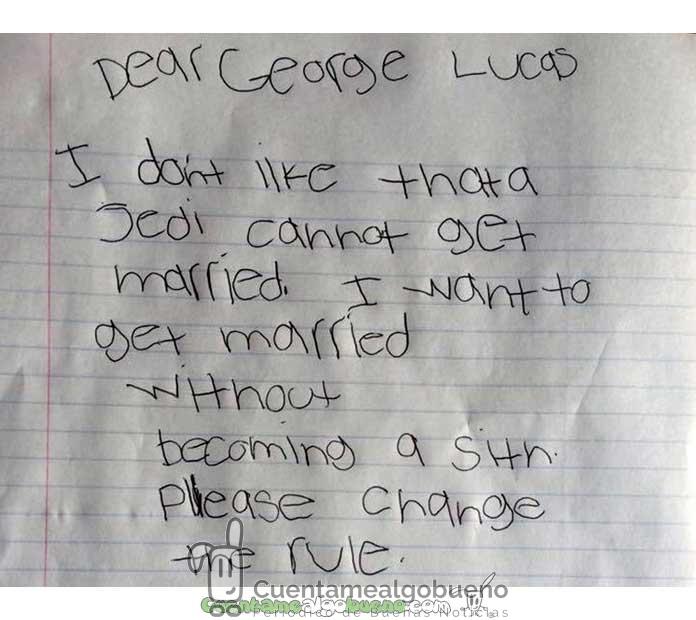 Dear George Lucas
I don't like that a
Jedi cannot get
married. I want to
get married
without
becoming a Sith.
Please change
the rule.
Cuentamealgobueno
Cuentamealgobueno.com
Periódico de Buenas Noticias